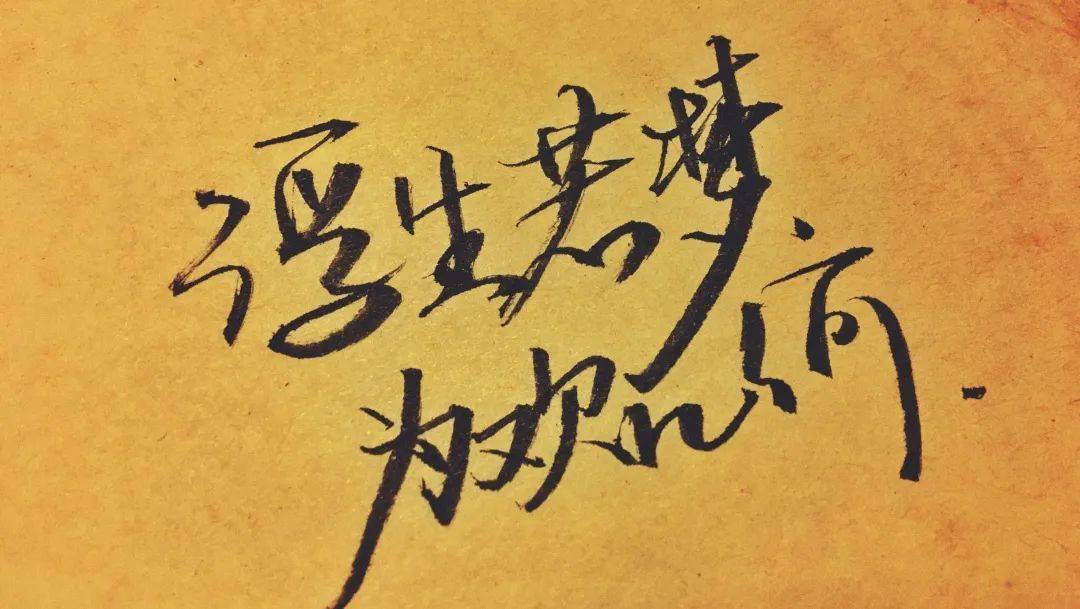 浮生若梦
为欢几何.